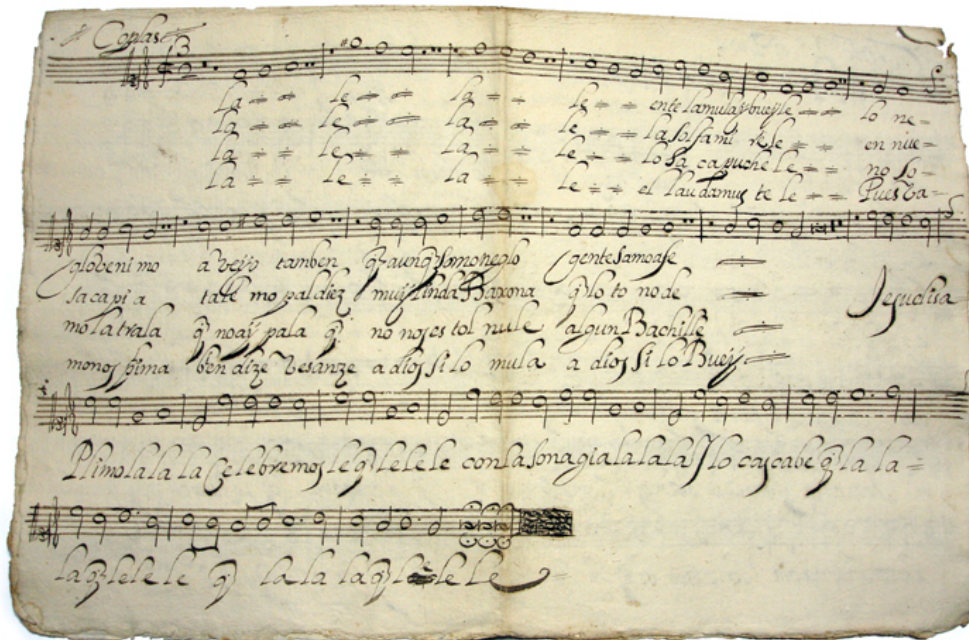 Coplas
la le la le ente lamula y buey le lo ne=
la le la le la sol fa mi re le en nue=
la le la le lo sa capuche le no so=
la le la le el laudamus te le Pues va=
globeni mo a veyo tamben q̃ aunq̃ somo neglo gente samo a fe
sa capi a tate mo pal diez muy linda Baxona q̃ lo to no de
Jesuclisa
mo la trala q̃ no ay pala q̃ no nos es tol nu le algun Bachille
monos plima ben dize a dios si lo mula a dios si lo Buey
Plimo la la la Celebremos le q̃ le le le con la sonagia la la la la y lo cascabe q̃ la la=
la q̃ le le le q̃ la la la q̃ le le le